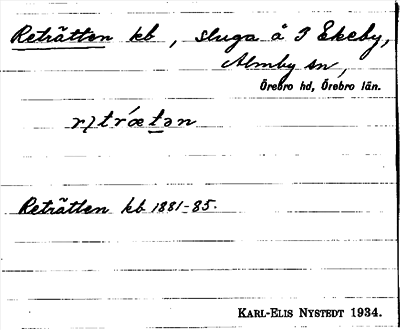 Reträtten kb, stuga å I Ekeby,
Almby sn,
Örebro hd, Örebro län.
Reträtten kb 1881-85.
KARL-ELIS NYSTEDT 1934.